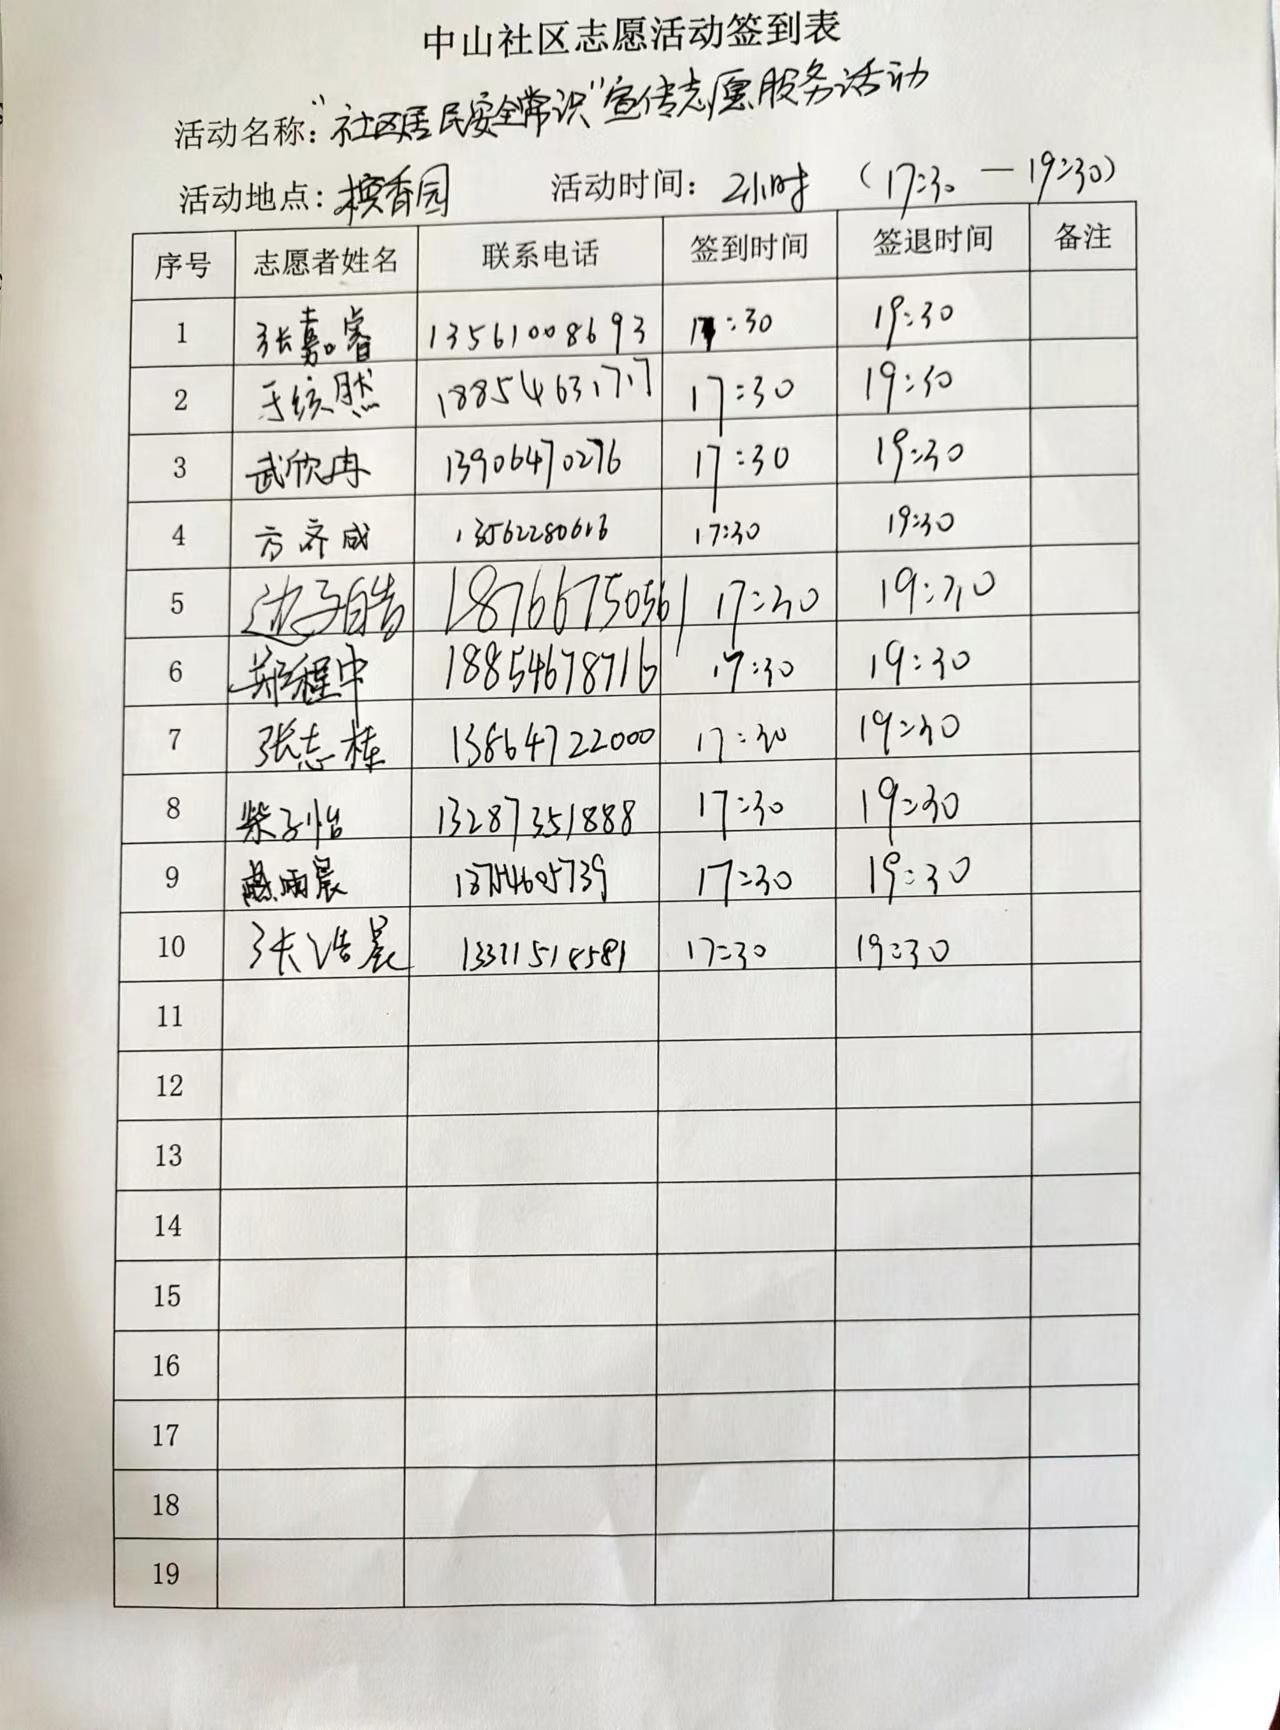 中山社区志愿活动签到表
活动名称:"社区居民安全常识"宣传志愿服务活动
活动地点:槟香园 活动时间: 2小时 (17:30 — 19:30)
序号 志愿者姓名 联系电话 签到时间 签退时间 备注
1 张嘉睿 13561008693 17:30 19:30
2 18854631717 17:30 19:30
3 武欣冉 13906470276 17:30 19:30
4 方齐成 13562280613 17:30 19:30
5 边子皓 18766750561 17:30 19:30
6 郑程中 18854678716 17:30 19:30
7 张志栋 13864722000 17:30 19:30
8 柴子怡 13287351888 17:30 19:30
9 雨晨 17:30 19:30
10 张浩晨 17:30 19:30
11
12
13
14
15
16
17
18
19